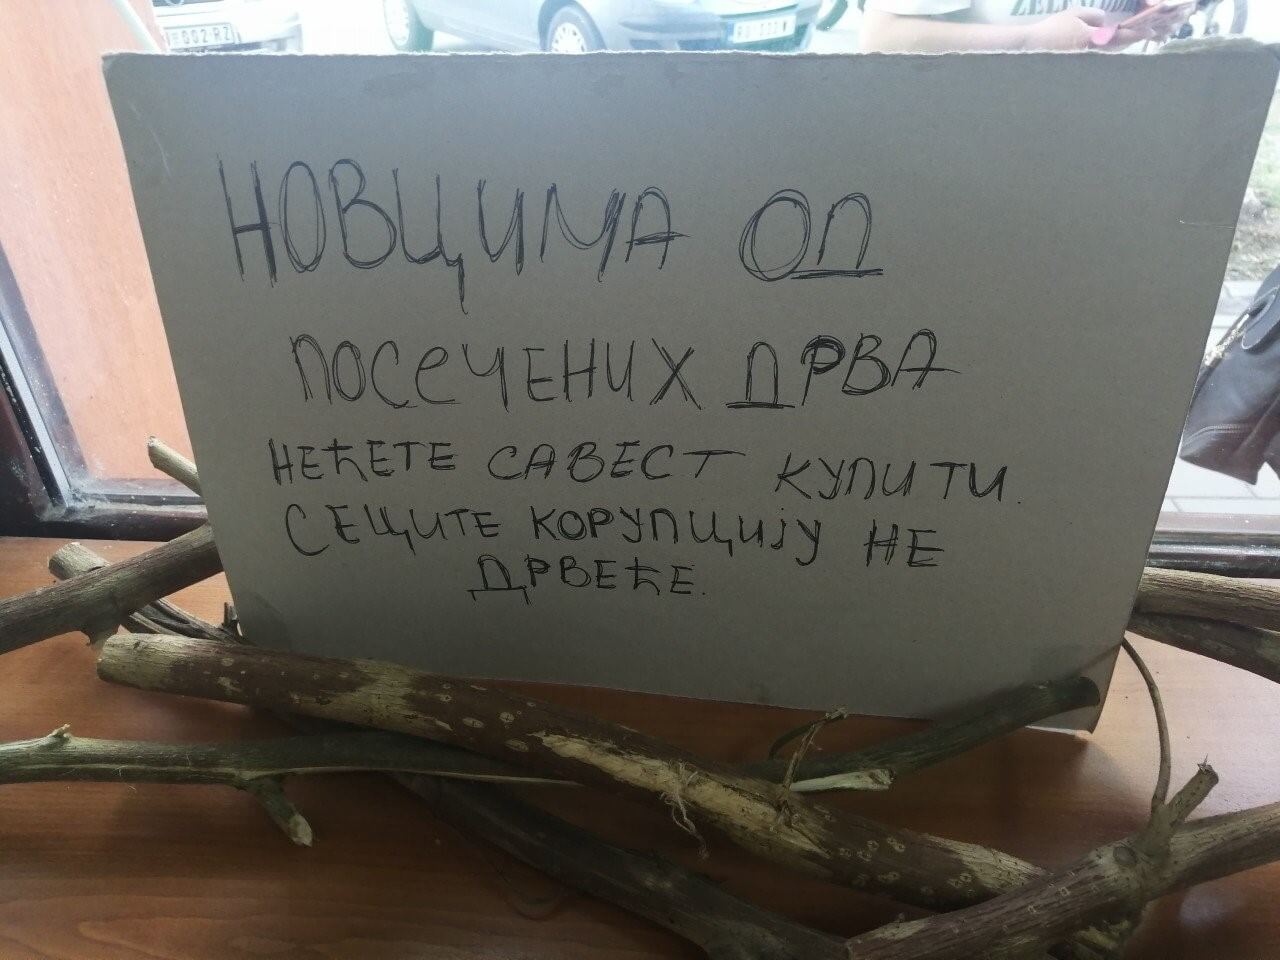 НОВЦИМА ОД
ПОСЕЧЕНИХ ДРВА
НЕЋЕТЕ САВЕСТ КУПИТИ.
СЕЦИТЕ КОРУПЦИЈУ НЕ
ДРВЕЋЕ.